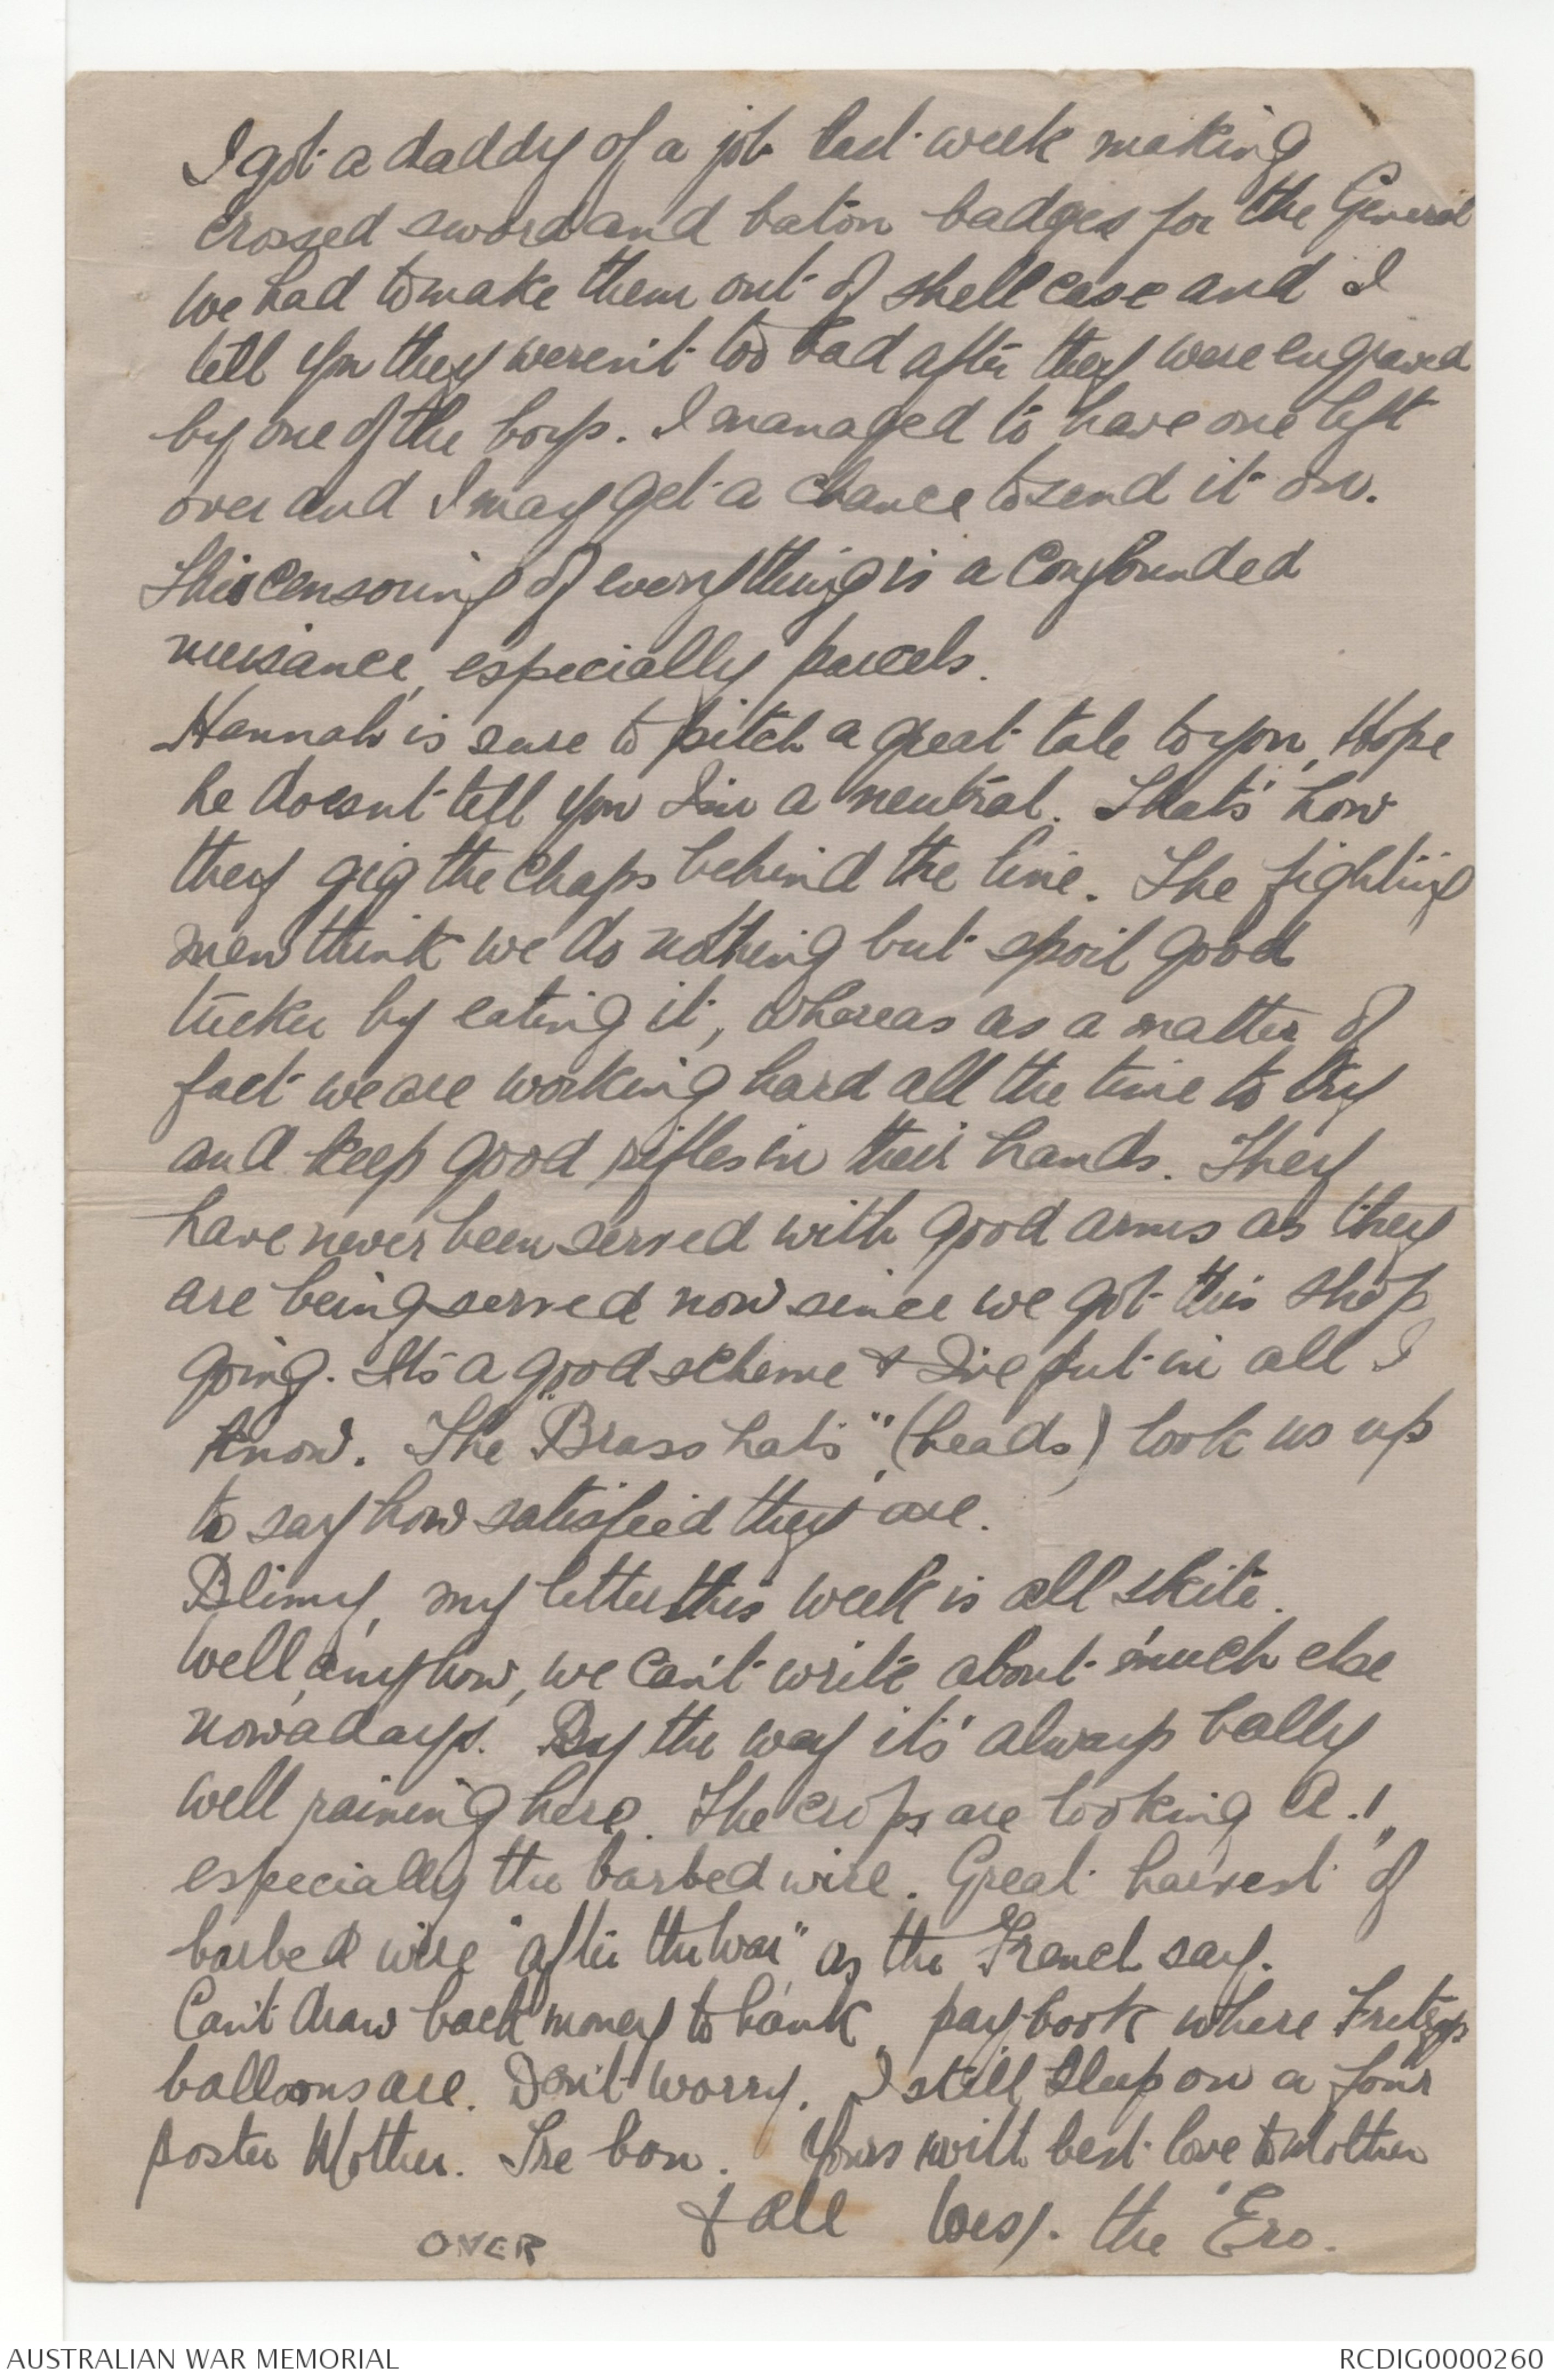 I got a daddy of a job last week making
crossed sword and baton badges for the General
we had to make them out of shell case and I
tell you they weren't too bad after they were engraved
by one of the boys. I managed to have one left
over and I may get a chance to send it on.
This censoring of everything is a confounded
nuisance, especially parcels.
Hannah is sure to pitch a great tale to you, Hope
he doesn't tell you I'm a neutral. That's how
they gig the chaps behind the line. The fighting
men think we do nothing but spoil good
tucker by eating it, whereas as a matter of
fact we are working hard all the time to try
and keep good rifles in their hands. They
have never been served with good arms as they
are being served now since we got this shop
going. It's a good scheme & I've put in all I
know. The "Brass hats", (heads) look us up
to say how satisfied they are.
Blimy, my letter this week is all skite.
Well, anyhow, we can't write about much else
nowadays. By the way it's always bally
well raining here. The crops are looking A.1,
especially the barbed wire. Great harvest of
barbed wire "after the war" as the French say.
Can't draw back money to bank pay-book where Fritzys
balloons are. Don't worry. I still sleep on a four
poster Mother. Tre bon. Yours with best love to Mother
& all Wesy. the 'Ero.
OVER
AUSTRALIAN WAR MEMORIAL
RCDIG0000260